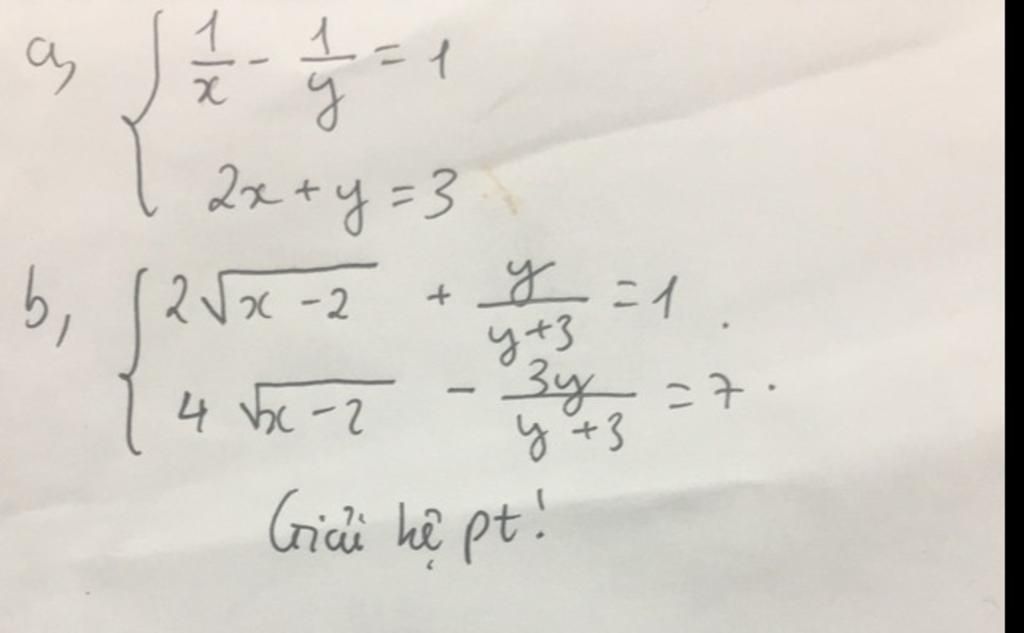 a, { 1/x - 1/y = 1
2x + y = 3
b, { 2√(x - 2) + y/(y+3) = 1 .
4 √(x - 2) - 3y/(y+3) = 7 .
Giải hệ pt!